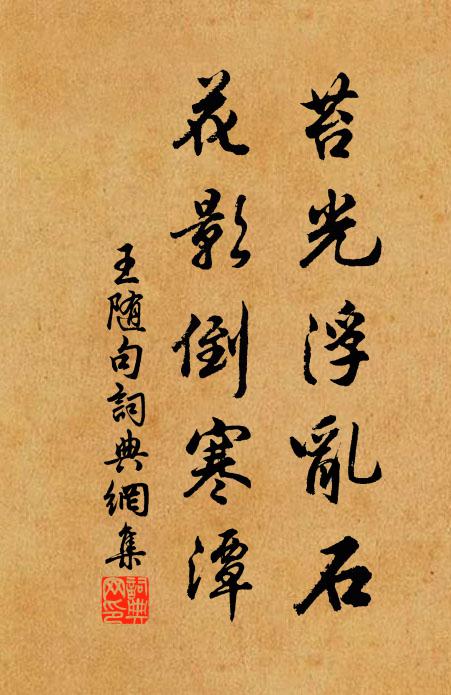 苔光浮亂石
花影倒寒潭
王随句詞典網集
詞典網印